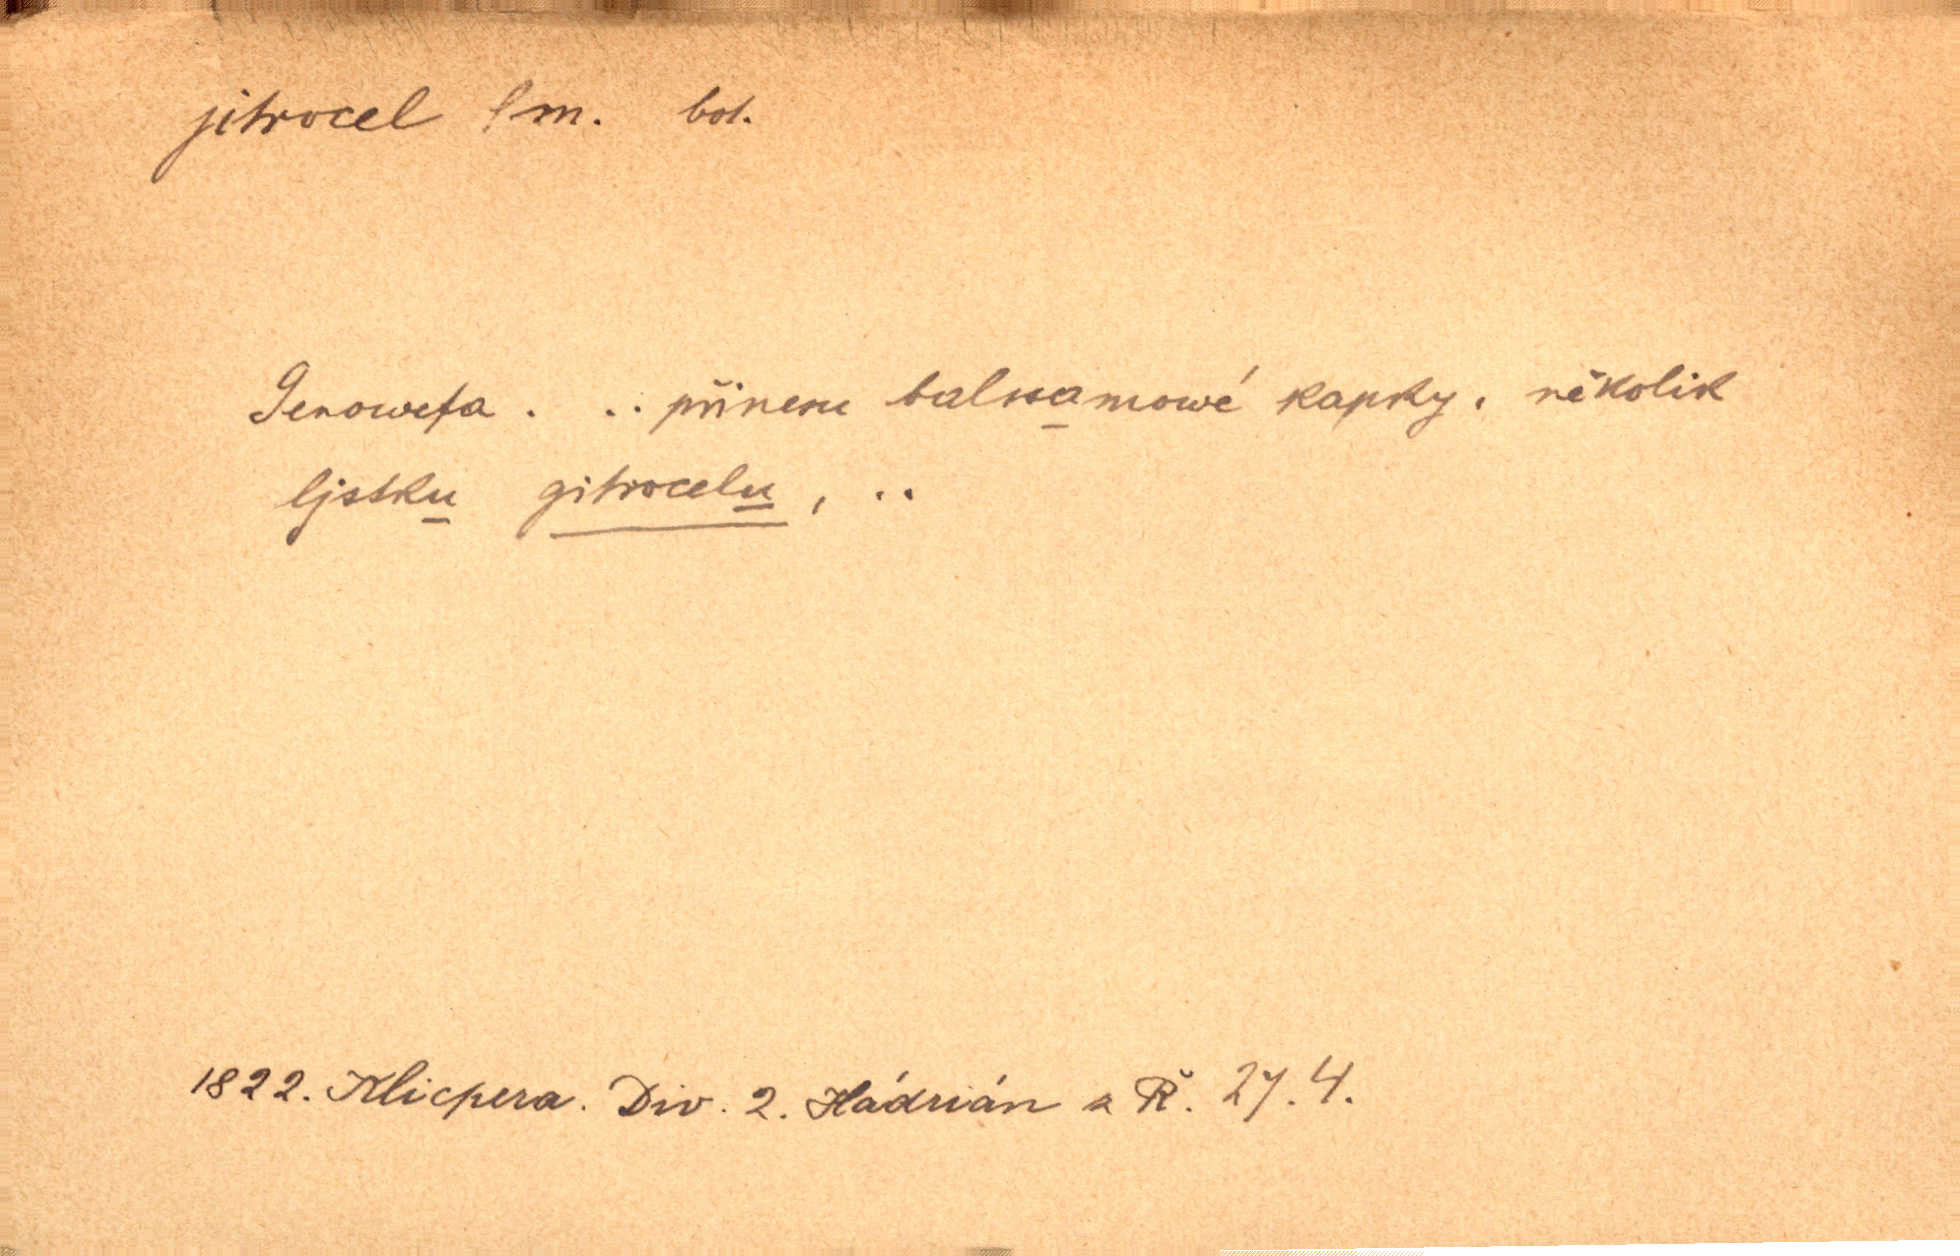 jitrocel m. bot.
Genowefa . .. přinesu balssamowé kapky, několik
ljstku gitrocelu, ..
1822. Klicpera. Div. 2. Hádrián z Ř. 27.4.